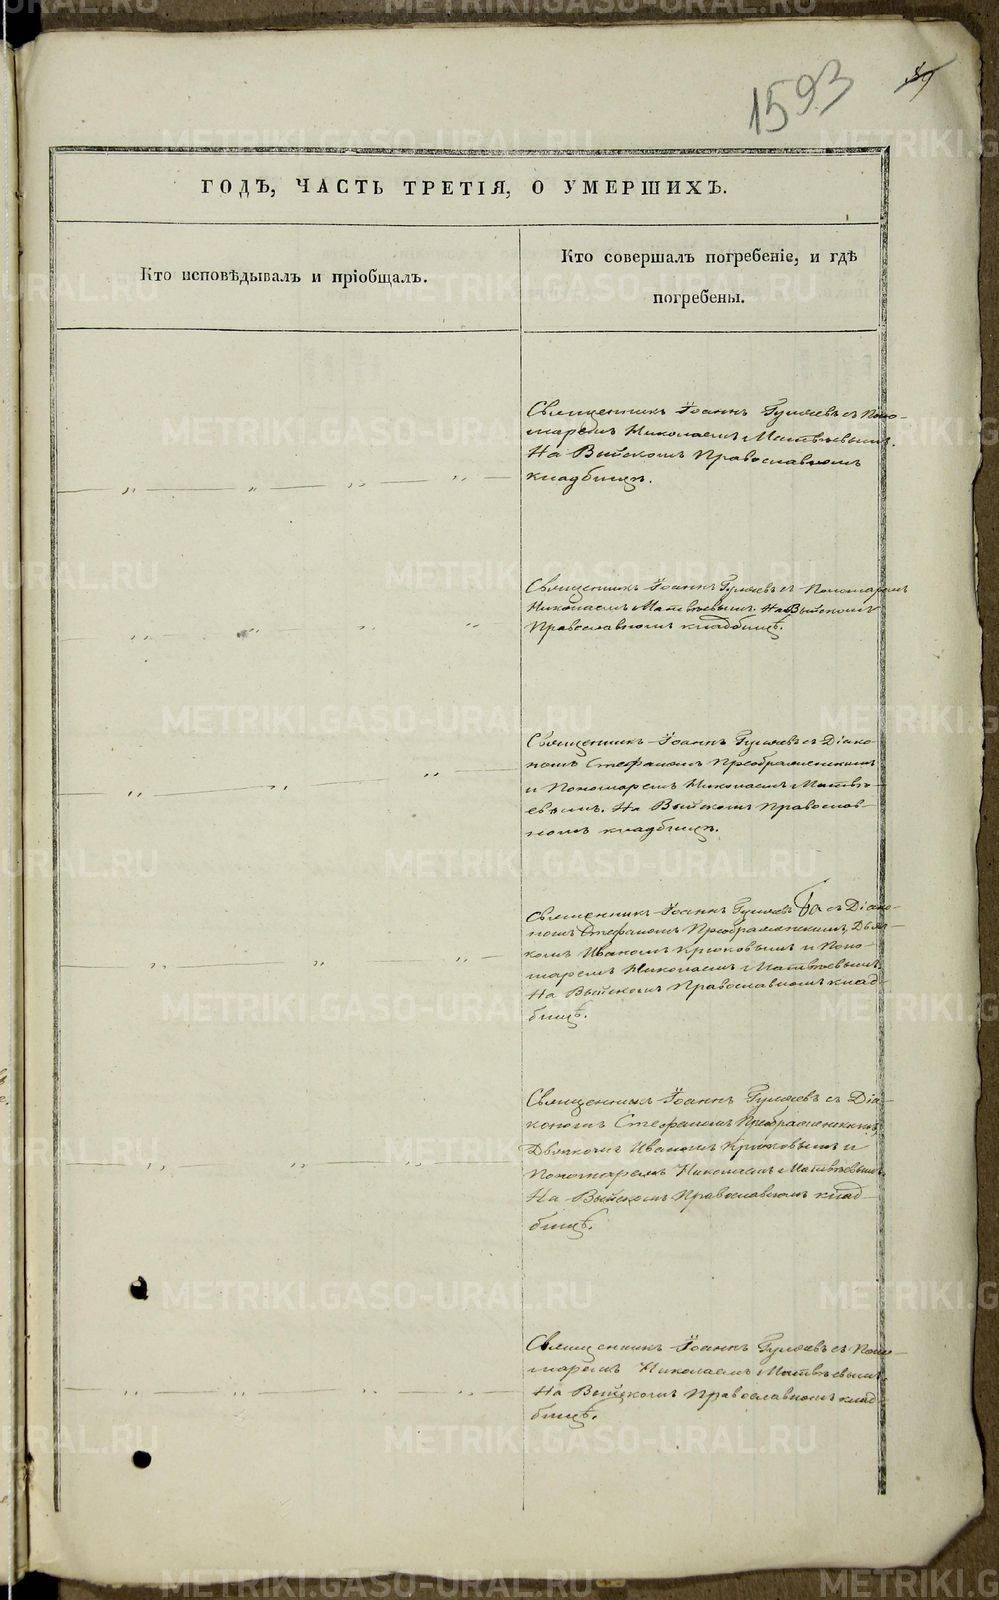 1593
ГОДЪ, ЧАСТЬ ТРЕТІЯ, О УМЕРШИХЪ.
Кто исповѣдывалъ и пріобщалъ.
Кто совершалъ погребеніе, и гдѣ
погребены.
Священникъ Іоаннъ Гуляевъ съ Поно-
маремъ Николаемъ Матвѣевымъ.
На Выйскомъ Православномъ
кладбищѣ.
Священникъ Іоаннъ Гуляевъ съ Пономаремъ
Николаемъ Матвѣевымъ. На Выйскомъ
Православномъ кладбищѣ.
Священникъ Іоаннъ Гуляевъ съ Діако-
номъ Стефаномъ Преображенскимъ
и Пономаремъ Николаемъ Матвѣ-
евымъ. На Выйскомъ Православ-
номъ кладбищѣ.
Священникъ Іоаннъ Гуляевъ съ Діако-
номъ Стефаномъ Преображенскимъ, Дьяч-
комъ Иваномъ Крюковымъ и Поно-
маремъ Николаемъ Матвѣевымъ.
На Выйскомъ Православномъ клад-
бищѣ.
Священникъ Іоаннъ Гуляевъ съ Діа-
кономъ Стефаномъ Преображенскимъ,
Дьячкомъ Иваномъ Крюковымъ и
Пономаремъ Николаемъ Матвѣевымъ.
На Выйскомъ Православномъ клад-
бищѣ.
Священникъ Іоаннъ Гуляевъ съ Поно-
маремъ Николаемъ Матвѣевымъ.
На Выйскомъ Православномъ клад-
бищѣ.
METRIKI.GASO-URAL.RU